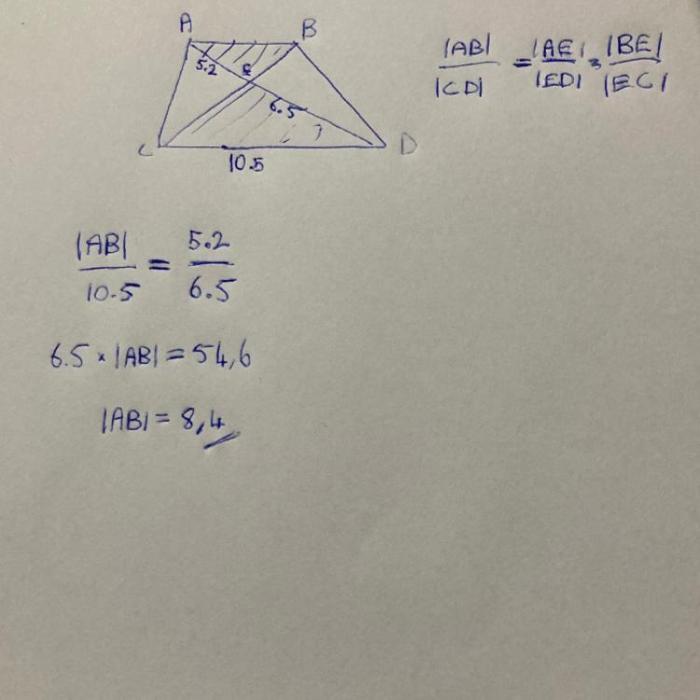 A B
5.2 E
6.5
C D
10.5
|AB| / |CD| = |AE| / |ED| = |BE| / |EC|
|AB| / 10.5 = 5.2 / 6.5
6.5 × |AB| = 54,6
|AB| = 8,4